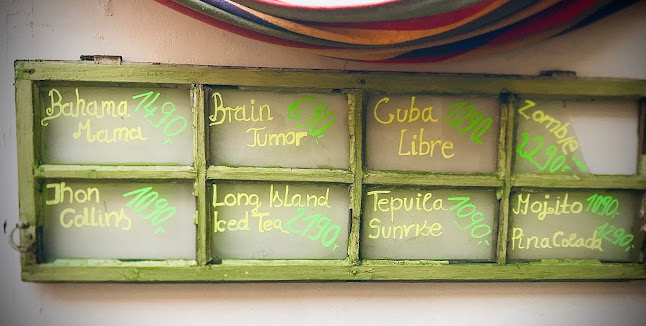 Bahama 1490,-
Mama
Brain 690,-
Tumor
Cuba 1090,-
Libre
Zombie
2290,-
Jhon
Collins 1090,-
Long Island
Iced Tea 2190,-
Tepuila 1090,-
Sunrise
Mojsito 1090,-
Pina Colada 1290,-